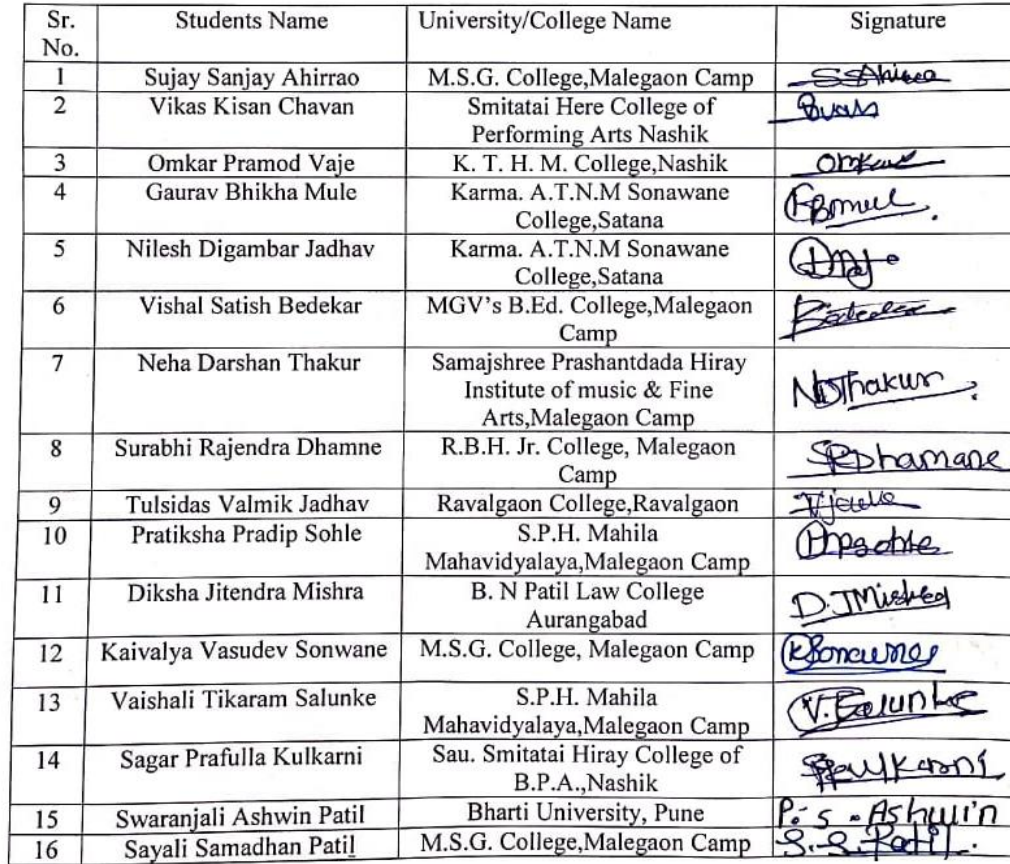 Sr. No. Students Name University/College Name Signature
1 Sujay Sanjay Ahirrao M.S.G. College,Malegaon Camp
2 Vikas Kisan Chavan Smitatai Here College of
Performing Arts Nashik
3 Omkar Pramod Vaje K. T. H. M. College,Nashik Omkar
4 Gaurav Bhikha Mule Karma. A.T.N.M Sonawane
College,Satana
5 Nilesh Digambar Jadhav Karma. A.T.N.M Sonawane
College,Satana
6 Vishal Satish Bedekar MGV's B.Ed. College,Malegaon
Camp
7 Neha Darshan Thakur Samajshree Prashantdada Hiray
Institute of music & Fine
Arts,Malegaon Camp
NDThakur
8 Surabhi Rajendra Dhamne R.B.H. Jr. College, Malegaon
Camp
SRDhamane
9 Tulsidas Valmik Jadhav Ravalgaon College,Ravalgaon
10 Pratiksha Pradip Sohle S.P.H. Mahila
Mahavidyalaya,Malegaon Camp
11 Diksha Jitendra Mishra B. N Patil Law College
Aurangabad
D.JMishra
12 Kaivalya Vasudev Sonwane M.S.G. College, Malegaon Camp
13 Vaishali Tikaram Salunke S.P.H. Mahila
Mahavidyalaya,Malegaon Camp
V.Salunke
14 Sagar Prafulla Kulkarni Sau. Smitatai Hiray College of
B.P.A.,Nashik
15 Swaranjali Ashwin Patil Bharti University, Pune P. S. Ashwin
16 Sayali Samadhan Patil M.S.G. College,Malegaon Camp S. S. Patil.